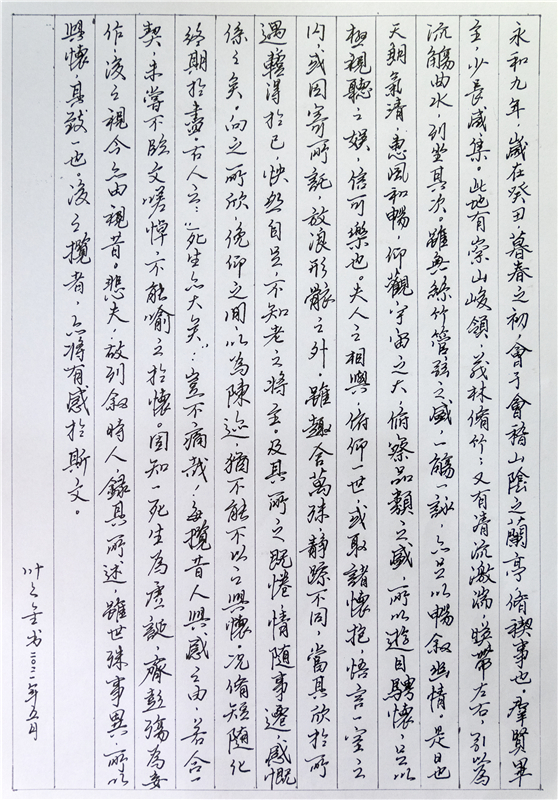 永和九年,歲在癸丑,暮春之初,會于會稽山陰之蘭亭,脩禊事也。羣賢畢
至,少長咸集。此地有崇山峻領,茂林脩竹;又有清流激湍,暎帶左右,引以為
流觴曲水,列坐其次。雖無絲竹管弦之盛,一觴一詠,亦足以暢敘幽情。是日也
天朗氣清,惠風和暢,仰觀宇宙之大,俯察品類之盛,所以遊目騁懷,足以
極視聽之娛,信可樂也。夫人之相與,俯仰一世,或取諸懷抱,悟言一室之
内,或因寄所託,放浪形骸之外,雖趣舍萬殊,静躁不同,當其欣於所
遇,蹔得於己,快然自足,不知老之將至。及其所之既惓,情隨事遷,感慨
係之矣。向之所欣,俛仰之間,以為陳迹,猶不能不以之興懷。况脩短随化
終期於盡。古人云:“死生亦大矣”。豈不痛哉!每攬昔人興感之由,若合一
契,未嘗不臨文嗟悼,不能喻之於懷。固知一死生為虛誕,齊彭殤為妄
作,後之視今亦由視昔。悲夫,故列敘時人,錄其所述,雖世殊事異,所以
興懷,其致一也。後之攬者,亦將有感於斯文。
叶金书二〇二一年五月